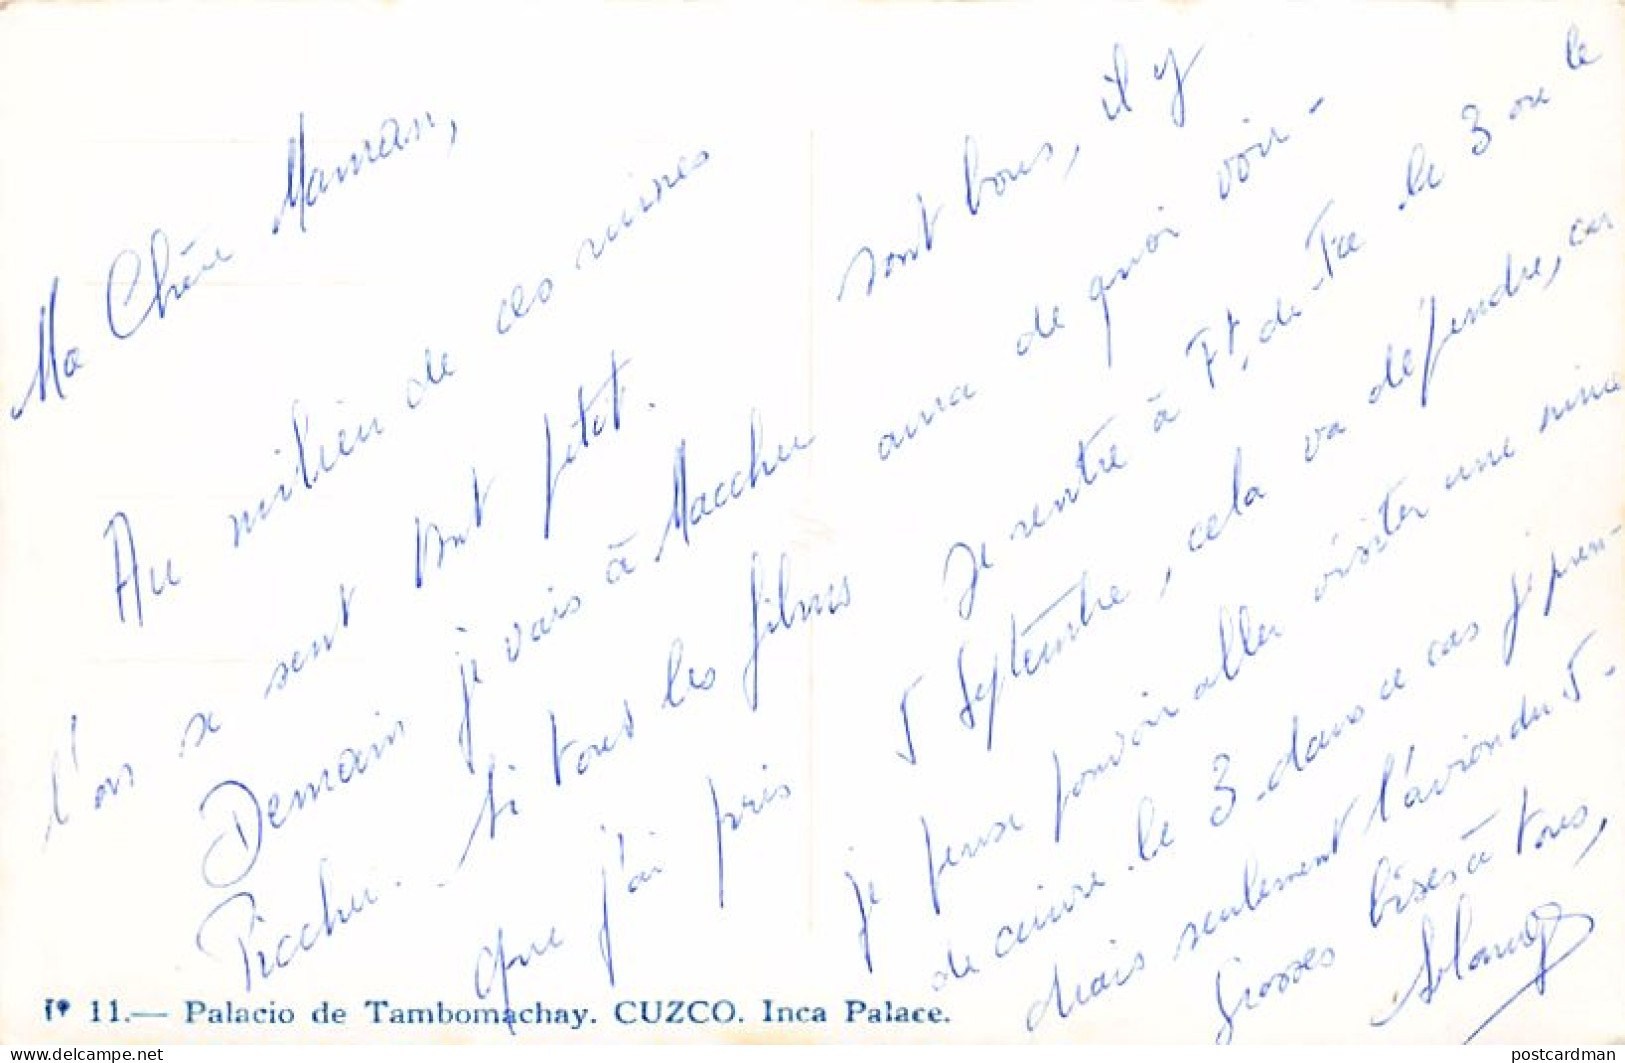 Ma Chère Maman,
Au milieu de ces ruines
l'on se sent tout petit.
Demain je vais à Macchu
Picchu - Si tous les films
que j'ai pris
sont bons, il y
aura de quoi voir -
Je rentre à Ft. de Fce le 3 ou le
5 Septembre, cela va dépendre, car
je pense pouvoir aller visiter une mine
de cuivre le 3 - dans ce cas je pren-
drais seulement l'avion du 5 -
Grosses bises à tous,
Nº 11.— Palacio de Tambomachay. CUZCO. Inca Palace.
delcampe.net
postcardman